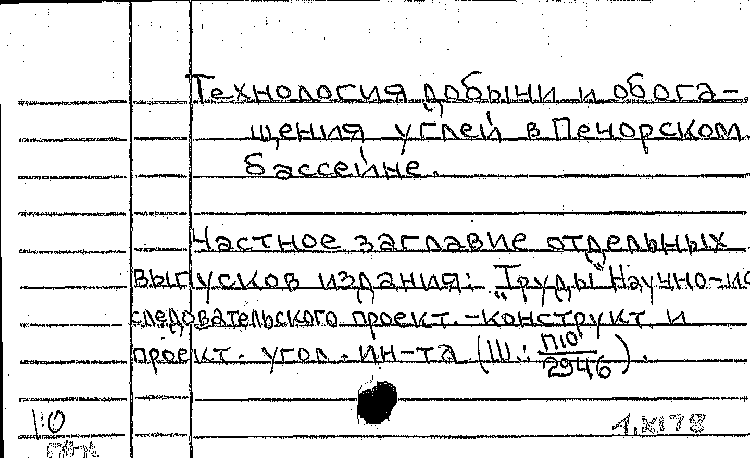 Технология добычи и обога-
щения углей в Печорском
бассейне.
Частное заглавие отдельных
выпусков издания: "Труды" Научно-ис
следовательского проект.-конструкт. и
проект. угол. ин-та (Ш.: П10/2946).
1:0
1.XI78